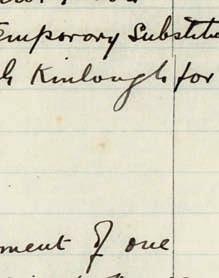 Temporary Substitu
Kinlough for
ment of one